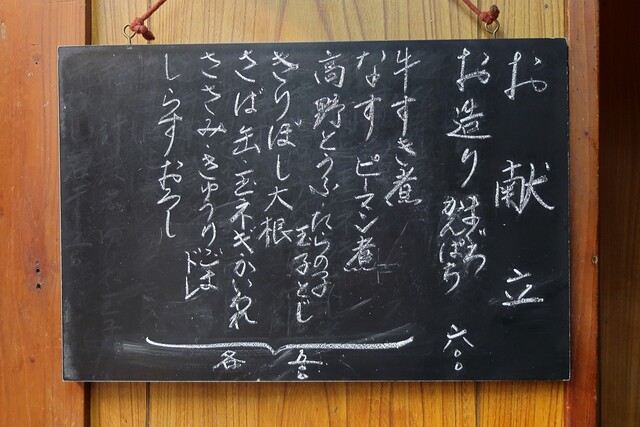 お献立
お造り まぐろ かんぱち 六〇〇
牛すき煮
なす ピーマン煮
高野とうふ・たらの子 玉子とじ
きりぼし大根
さば缶・玉ネギかいわれ
ささみ・きゅうりごまドレ
しらすおろし
各 五〇〇